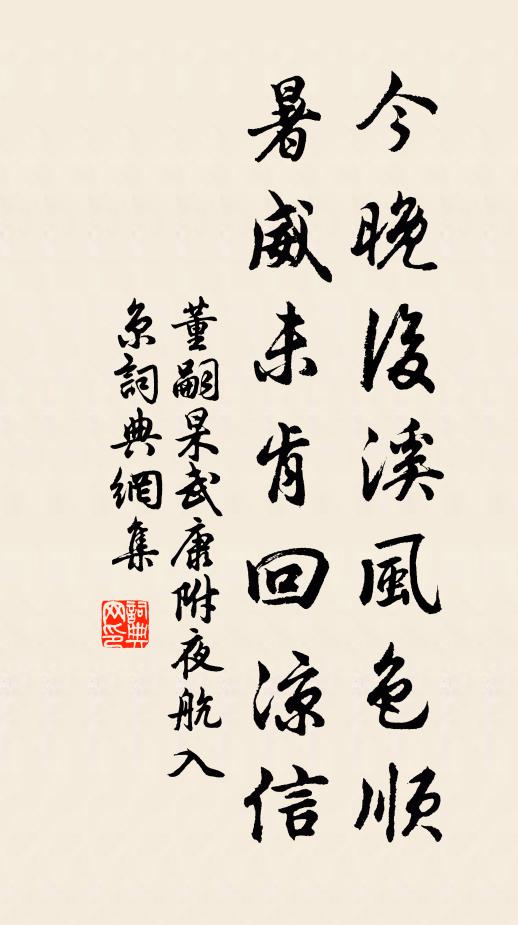 今晚後溪風色順
暑威未肯回涼信
董嗣杲武康附夜航入
京詞典網集
詞典網印